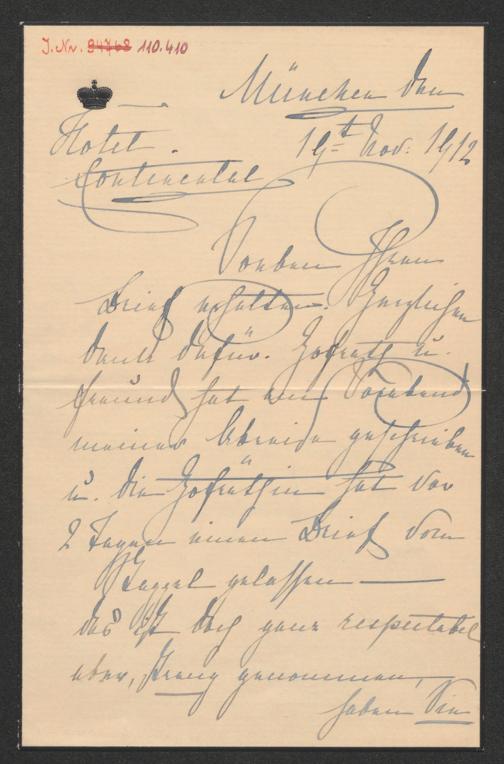 J. Nr. 94768 110.410
München den
Hotel. 19t Nov: 1912
Continental
Soeben Ihren
Brief erhalten. Herzlichen
Dank dafür. Hofrath u.
Freund hat am Vorabend
meiner Abreise geschrieben
u. die Hofräthin hat vor
2 Tagen einen Brief vom
Stappel gelassen —
das ist doch ganz respectabel
aber, streng genommen,
haben Sie